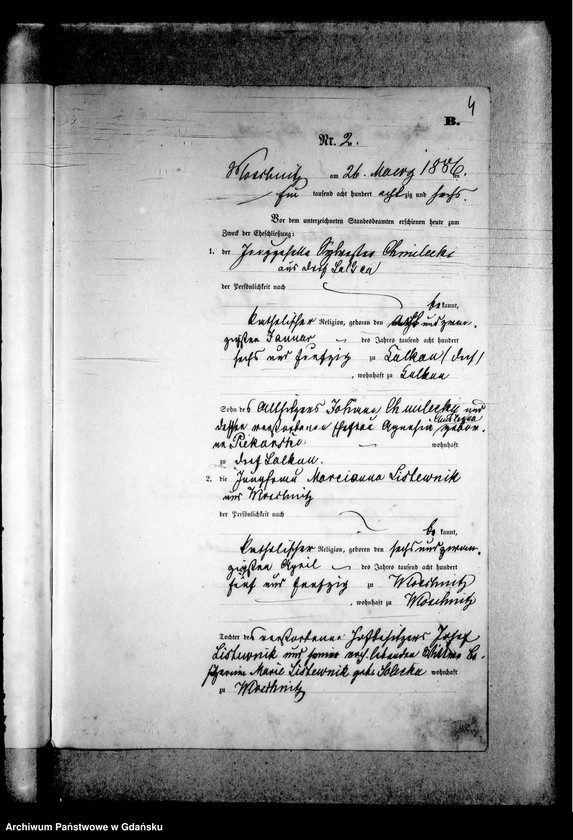 4
B.
Nr. 2.
Woschnitz am 26. Maerz 1886. ten
Ein tausend acht hundert achtzig und sechs.
Vor dem unterzeichneten Standesbeamten erschienen heute zum
Zweck der Eheschließung:
1. der Junggeselle Sylvester Chmilecki
aus Dorf Lalkau
der Persönlichkeit nach
bekannt,
katholischer Religion, geboren den acht und zwan-
zigsten Januar des Jahres tausend acht hundert
sechs und fünfzig zu Lalkau (Dorf)
, wohnhaft zu Lalkau
Sohn des Altsitzers Johann Chmilecky und
dessen verstorbenen Ehefrau Agnesia gebor-
ne Piekarska wohnhaft
zu Dorf Lalkau.
2. die Jungfrau Marcianna Listewnik
aus Woschnitz
der Persönlichkeit nach
bekannt,
katholischer Religion, geboren den sechs und zwan-
zigsten April des Jahres tausend acht hundert
fünf und fünfzig zu Woschnitz
, wohnhaft zu Woschnitz
Tochter des verstorbenen Hofbesitzers Josef
Listewnik und noch lebenden Wittwe Be-
sitzerin Marie Listewnik geb. wohnhaft
zu Woschnitz
Archiwum Państwowe w Gdańsku